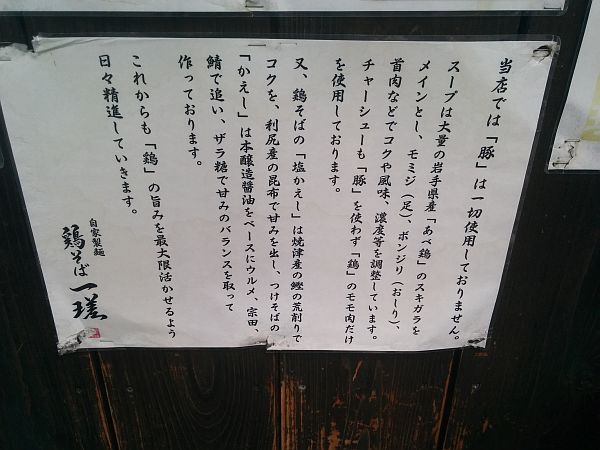 当店では「豚」は一切使用しておりません。
スープは大量の岩手県産「あべ鶏」のスキガラを
メインとし、モミジ(足)、ボンジリ(おしり)、
首肉などでコクや風味、濃度等を調整しています。
チャーシューも「豚」を使わず「鶏」のモモ肉だけ
を使用しております。
又、鶏そばの「塩かえし」は焼津産の鰹の荒削りで
コクを、利尻産の昆布で甘みを出し、つけそばの
「かえし」は本醸造醤油をベースにウルメ、宗田、
鯖で追い、ザラ糖で甘みのバランスを取って
作っております。
これからも「鶏」の旨みを最大限活かせるよう
日々精進していきます。
自家製麺
鶏そば一瑳